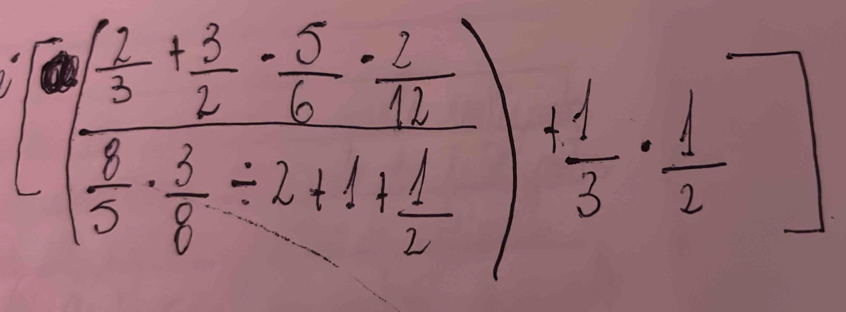 [ ( (2/3 + 3/2 · 5/6 · 2/12) / (8/5 · 3/8 ÷ 2 + 1 + 1/2) ) + 1/3 · 1/2 ]